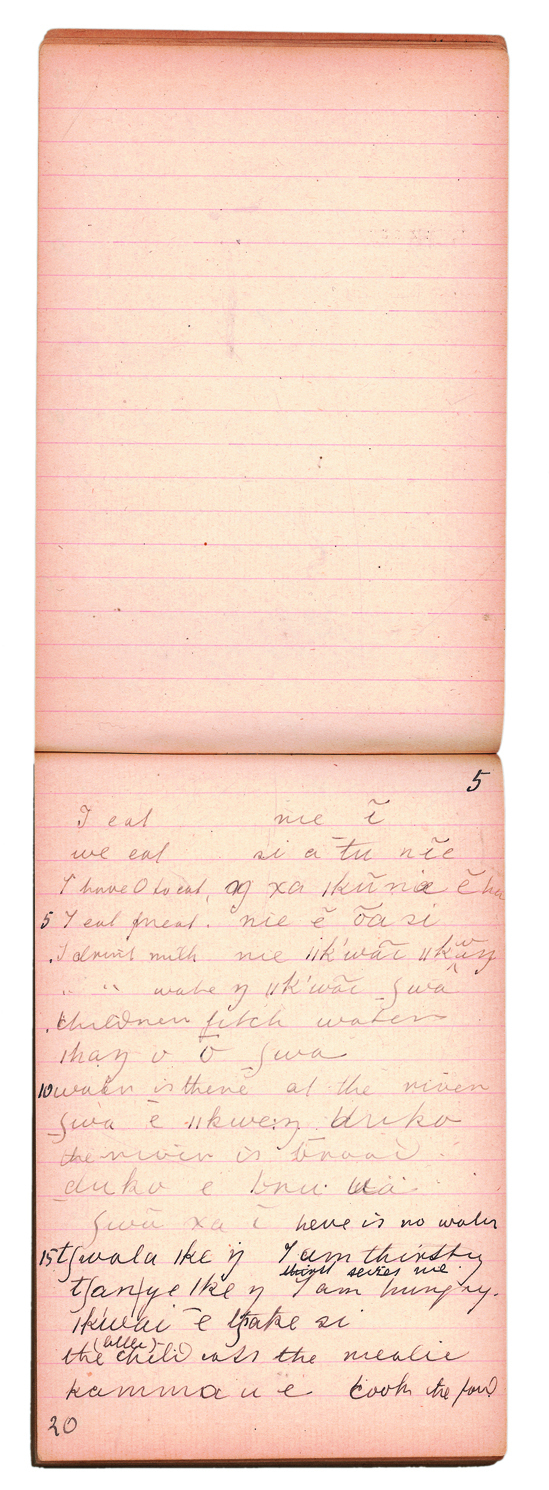 5
I eat nie ĩ
we eat si a tu nĩe
I have 0 to eat, ŋ xa ǀkũnia
5 I eat meat. nie ẽ õa si
I drink milk nie ǁk'wãĩ
" " water ŋ ǁk'wãĩ ʃwa
children fetch water
ǀhaŋ o ō ʃwa
10 water is there at the river
ʃwa ē ǁkweŋ duko
the river is broad
duko e
ʃwā xa ĩ here is no water
15 tʃwala ǀke ŋ I am thirsty
thirst seizes me
tʃanye ǀke ŋ I am hungry.
ǀkwai e tʃake si
the child eats the mealie
kamma u e cook the food
20